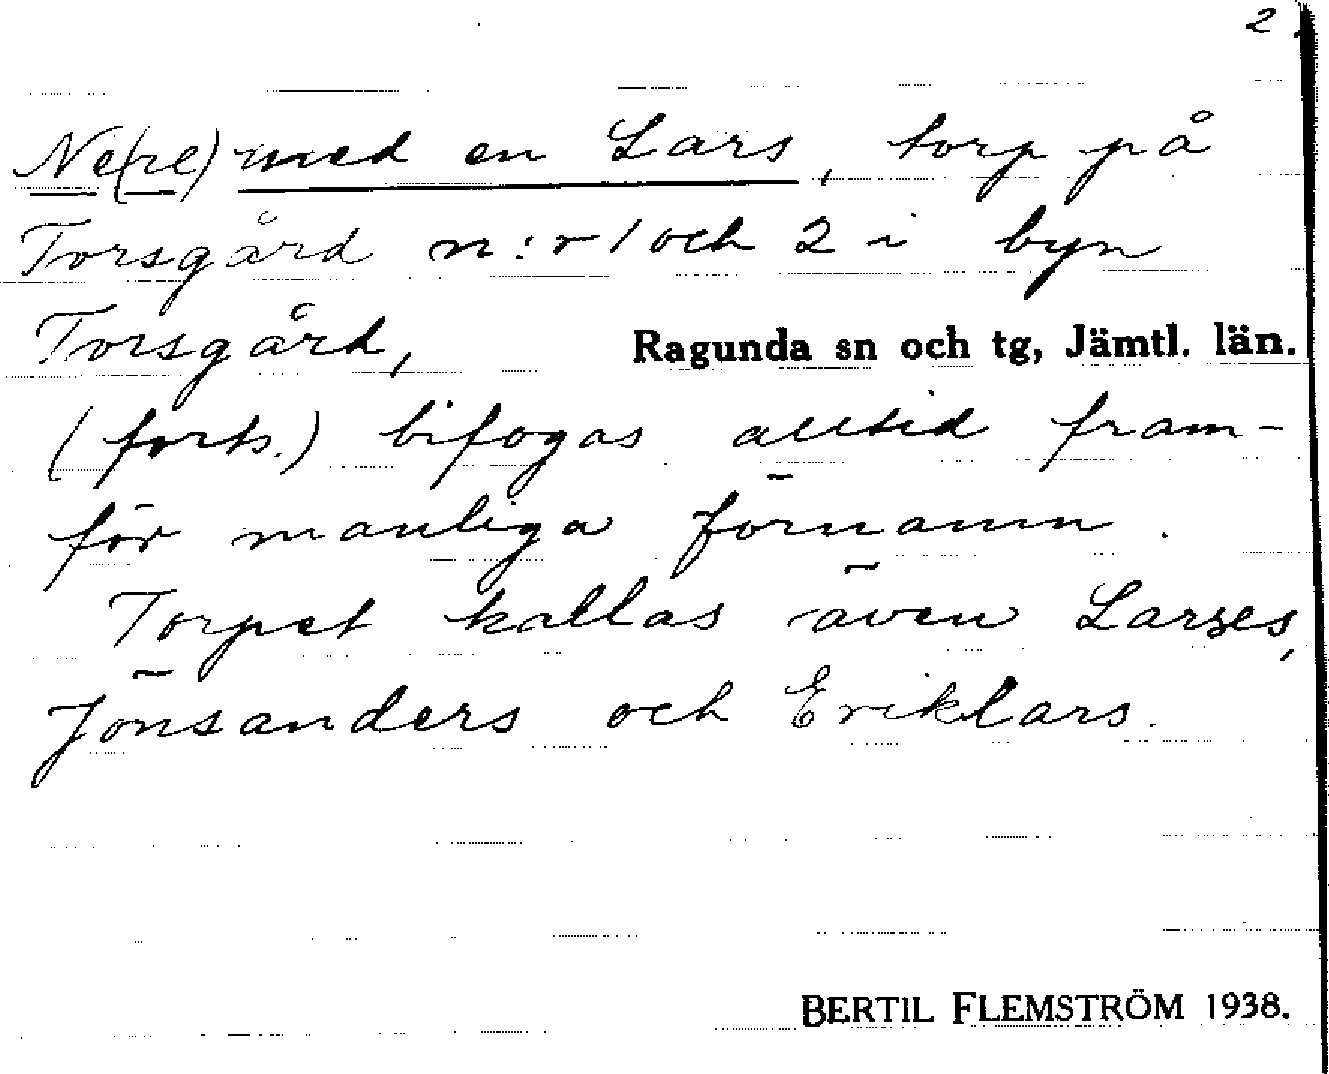 2
Ne(re) med en Lars, torp på
Torsgård n:r 1 och 2 i byn
Torsgård, Ragunda sn och tg, Jämtl. län.
(forts.) bifogas alltid fram-
för manliga förnamn.
Torpet kallas även Larses,
Jönsanders och Eriklars.
BERTIL FLEMSTRÖM 1938.